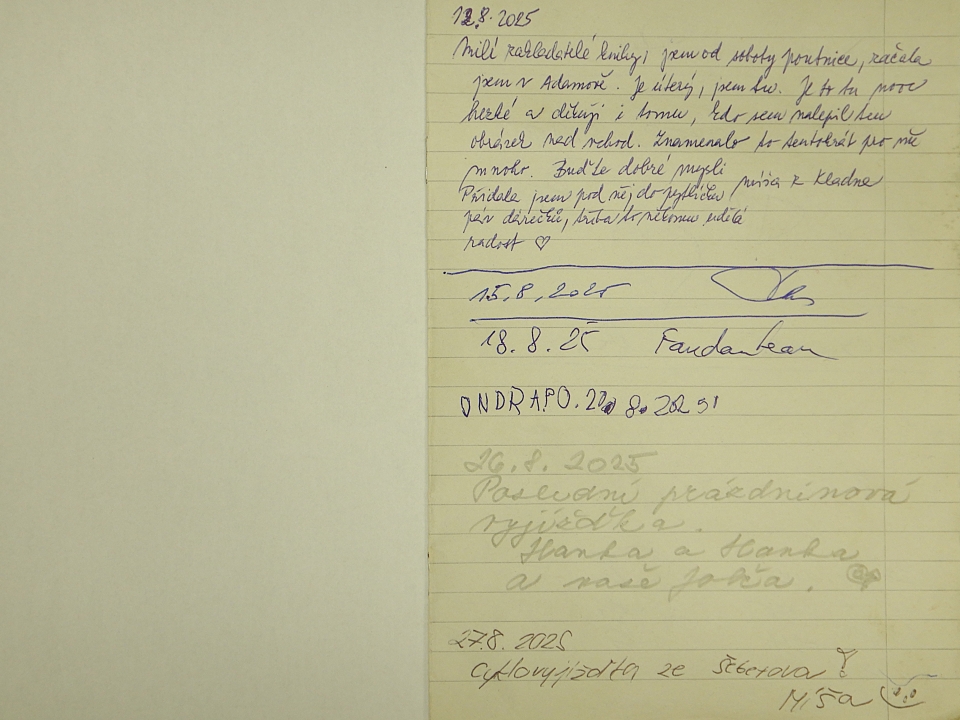 12.8.2025
Milí zakladatelé knihy, jsem od soboty poutnice, začala
jsem v Adamově. Je úterý, jsem tu. Je to tu moc
hezké a děkuji i tomu, kdo sem nalepil ten
obrázek nad vchod. Znamenalo to tentokrát pro mě
mnoho. Buďte dobré mysli
Míša z Kladna
Přidala jsem pod něj do pytlíčku
pár dárečků, třeba to někomu udělá
radost ♡
15.8.2025
18.8.25 Fandanteam
ONDRA PO. 20. 8. 2025
26.8.2025
Poslední prázdninová
vyjížďka.
Hanka a Hanka
a naše
27.8.2025
Cyklovyjížďka ze Šeberova!
Míša